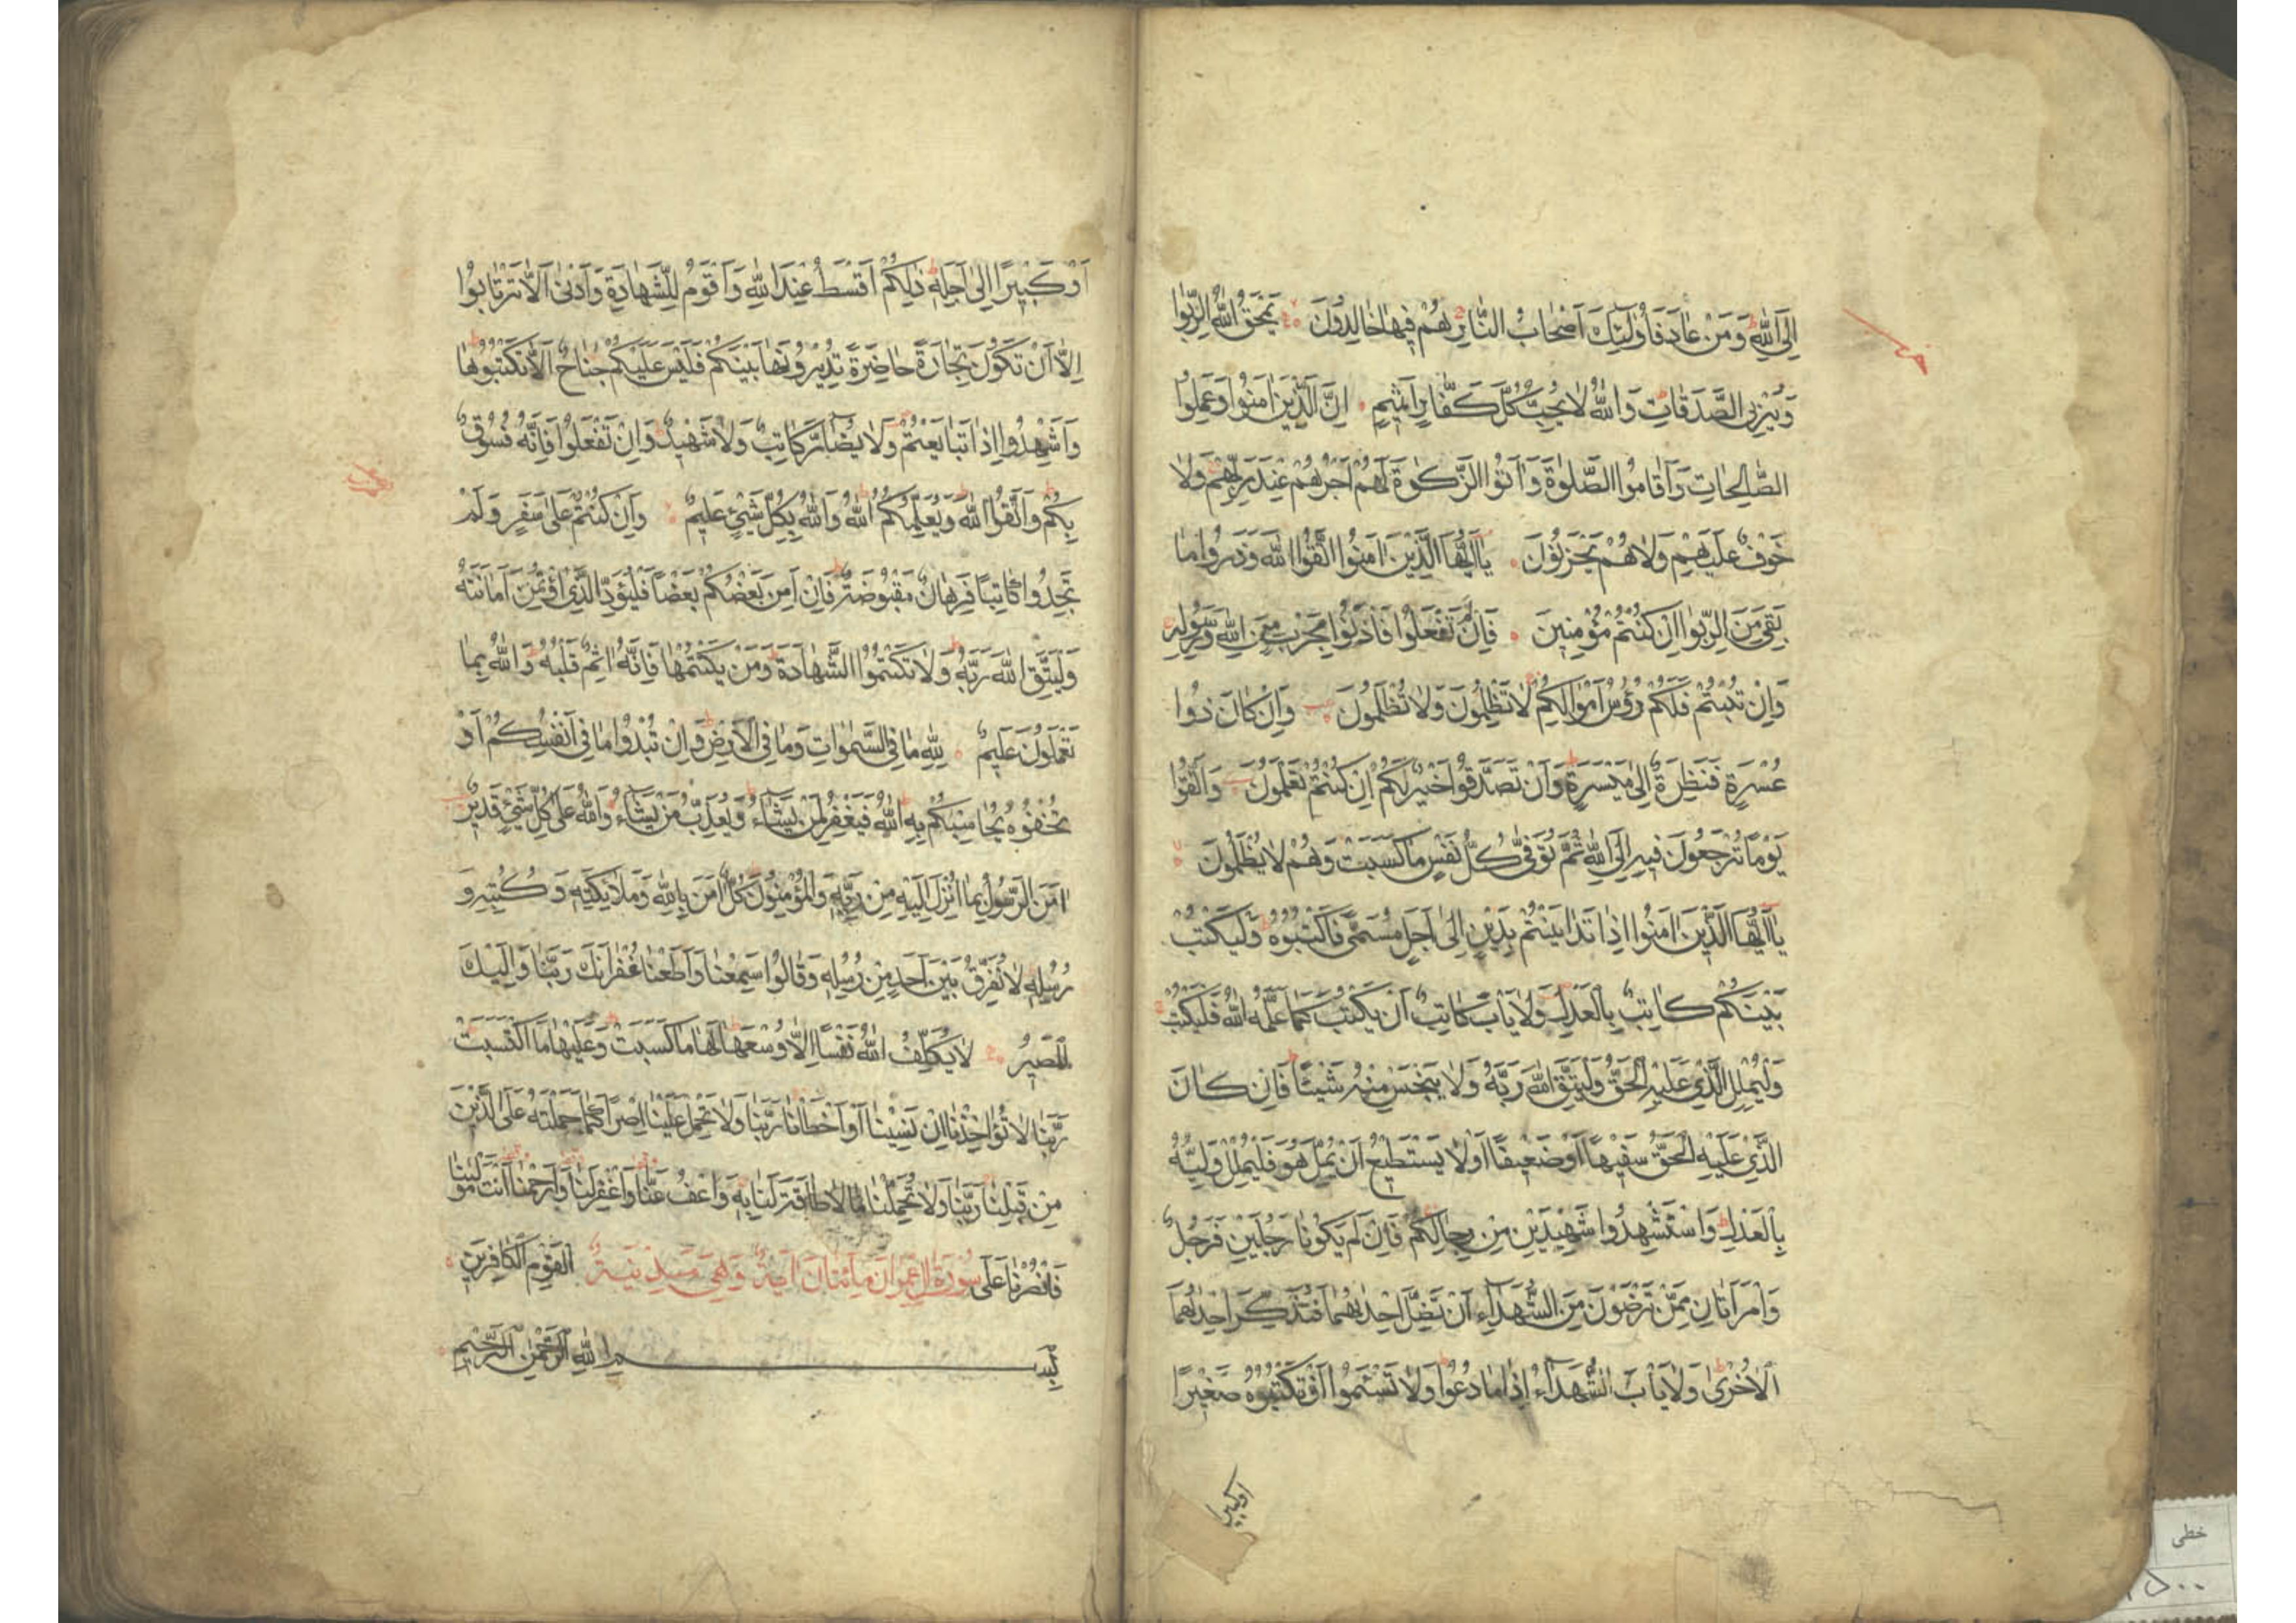 اِلَى اللّٰهِ وَمَنْ عَادَ فَاُولٰٓئِكَ اَصْحَابُ النَّارِ هُمْ فِيهَا خَالِدُونَ يَمْحَقُ اللّٰهُ الرِّبٰوا
وَيُرْبِي الصَّدَقَاتِ وَاللّٰهُ لَا يُحِبُّ كُلَّ كَفَّارٍ اَثِيمٍ اِنَّ الَّذِينَ اٰمَنُوا وَعَمِلُوا
الصَّالِحَاتِ وَاَقَامُوا الصَّلٰوةَ وَاٰتَوُا الزَّكٰوةَ لَهُمْ اَجْرُهُمْ عِنْدَ رَبِّهِمْ وَلَا
خَوْفٌ عَلَيْهِمْ وَلَا هُمْ يَحْزَنُونَ يَااَيُّهَا الَّذِينَ اٰمَنُوا اتَّقُوا اللّٰهَ وَذَرُوا مَا
بَقِيَ مِنَ الرِّبٰوا اِنْ كُنْتُمْ مُؤْمِنِينَ فَاِنْ لَمْ تَفْعَلُوا فَأْذَنُوا بِحَرْبٍ مِنَ اللّٰهِ وَرَسُولِهِ
وَاِنْ تُبْتُمْ فَلَكُمْ رُؤُسُ اَمْوَالِكُمْ لَا تَظْلِمُونَ وَلَا تُظْلَمُونَ وَاِنْ كَانَ ذُوا
عُسْرَةٍ فَنَظِرَةٌ اِلٰى مَيْسَرَةٍ وَاَنْ تَصَدَّقُوا خَيْرٌ لَكُمْ اِنْ كُنْتُمْ تَعْلَمُونَ وَاتَّقُوا
يَوْمًا تُرْجَعُونَ فِيهِ اِلَى اللّٰهِ ثُمَّ تُوَفّٰى كُلُّ نَفْسٍ مَا كَسَبَتْ وَهُمْ لَا يُظْلَمُونَ
يَااَيُّهَا الَّذِينَ اٰمَنُوا اِذَا تَدَايَنْتُمْ بِدَيْنٍ اِلٰى اَجَلٍ مُسَمًّى فَاكْتُبُوهُ وَلْيَكْتُبْ
بَيْنَكُمْ كَاتِبٌ بِالْعَدْلِ وَلَا يَأْبَ كَاتِبٌ اَنْ يَكْتُبَ كَمَا عَلَّمَهُ اللّٰهُ فَلْيَكْتُبْ
وَلْيُمْلِلِ الَّذِي عَلَيْهِ الْحَقُّ وَلْيَتَّقِ اللّٰهَ رَبَّهُ وَلَا يَبْخَسْ مِنْهُ شَيْئًا فَاِنْ كَانَ
الَّذِي عَلَيْهِ الْحَقُّ سَفِيهًا اَوْ ضَعِيفًا اَوْ لَا يَسْتَطِيعُ اَنْ يُمِلَّ هُوَ فَلْيُمْلِلْ وَلِيُّهُ
بِالْعَدْلِ وَاسْتَشْهِدُوا شَهِيدَيْنِ مِنْ رِجَالِكُمْ فَاِنْ لَمْ يَكُونَا رَجُلَيْنِ فَرَجُلٌ
وَامْرَاَتَانِ مِمَّنْ تَرْضَوْنَ مِنَ الشُّهَدَاءِ اَنْ تَضِلَّ اِحْدٰىهُمَا فَتُذَكِّرَ اِحْدٰىهُمَا
الْاُخْرٰى وَلَا يَأْبَ الشُّهَدَاءُ اِذَا مَا دُعُوا وَلَا تَسْئَمُوا اَنْ تَكْتُبُوهُ صَغِيرًا
اوكبيرا
اَوْ كَبِيرًا اِلٰى اَجَلِهِ ذٰلِكُمْ اَقْسَطُ عِنْدَ اللّٰهِ وَاَقْوَمُ لِلشَّهَادَةِ وَاَدْنٰى اَلَّا تَرْتَابُوا
اِلَّا اَنْ تَكُونَ تِجَارَةً حَاضِرَةً تُدِيرُونَهَا بَيْنَكُمْ فَلَيْسَ عَلَيْكُمْ جُنَاحٌ اَلَّا تَكْتُبُوهَا
وَاَشْهِدُوا اِذَا تَبَايَعْتُمْ وَلَا يُضَارَّ كَاتِبٌ وَلَا شَهِيدٌ وَاِنْ تَفْعَلُوا فَاِنَّهُ فُسُوقٌ
بِكُمْ وَاتَّقُوا اللّٰهَ وَيُعَلِّمُكُمُ اللّٰهُ وَاللّٰهُ بِكُلِّ شَيْءٍ عَلِيمٌ وَاِنْ كُنْتُمْ عَلٰى سَفَرٍ وَلَمْ
تَجِدُوا كَاتِبًا فَرِهَانٌ مَقْبُوضَةٌ فَاِنْ اَمِنَ بَعْضُكُمْ بَعْضًا فَلْيُؤَدِّ الَّذِي اؤْتُمِنَ اَمَانَتَهُ
وَلْيَتَّقِ اللّٰهَ رَبَّهُ وَلَا تَكْتُمُوا الشَّهَادَةَ وَمَنْ يَكْتُمْهَا فَاِنَّهُ اٰثِمٌ قَلْبُهُ وَاللّٰهُ بِمَا
تَعْمَلُونَ عَلِيمٌ لِلّٰهِ مَا فِي السَّمٰوَاتِ وَمَا فِي الْاَرْضِ وَاِنْ تُبْدُوا مَا فِي اَنْفُسِكُمْ اَوْ
تُخْفُوهُ يُحَاسِبْكُمْ بِهِ اللّٰهُ فَيَغْفِرُ لِمَنْ يَشَاءُ وَيُعَذِّبُ مَنْ يَشَاءُ وَاللّٰهُ عَلٰى كُلِّ شَيْءٍ قَدِيرٌ
اٰمَنَ الرَّسُولُ بِمَا اُنْزِلَ اِلَيْهِ مِنْ رَبِّهِ وَالْمُؤْمِنُونَ كُلٌّ اٰمَنَ بِاللّٰهِ وَمَلٰئِكَتِهِ وَكُتُبِهِ وَ
رُسُلِهِ لَا نُفَرِّقُ بَيْنَ اَحَدٍ مِنْ رُسُلِهِ وَقَالُوا سَمِعْنَا وَاَطَعْنَا غُفْرَانَكَ رَبَّنَا وَاِلَيْكَ
الْمَصِيرُ لَا يُكَلِّفُ اللّٰهُ نَفْسًا اِلَّا وُسْعَهَا لَهَا مَا كَسَبَتْ وَعَلَيْهَا مَا اكْتَسَبَتْ
رَبَّنَا لَا تُؤَاخِذْنَا اِنْ نَسِينَا اَوْ اَخْطَاْنَا رَبَّنَا وَلَا تَحْمِلْ عَلَيْنَا اِصْرًا كَمَا حَمَلْتَهُ عَلَى الَّذِينَ
مِنْ قَبْلِنَا رَبَّنَا وَلَا تُحَمِّلْنَا مَا لَا طَاقَةَ لَنَا بِهِ وَاعْفُ عَنَّا وَاغْفِرْ لَنَا وَارْحَمْنَا اَنْتَ مَوْلٰينَا
فَانْصُرْنَا عَلَى سُورَةُ اٰلِ عِمْرَانَ مِائَتَانِ اٰيَةً وَهِيَ مَدِينِيَّةٌ الْقَوْمِ الْكَافِرِينَ
بِسْمِ اللّٰهِ الرَّحْمٰنِ الرَّحِيمِ
خطی